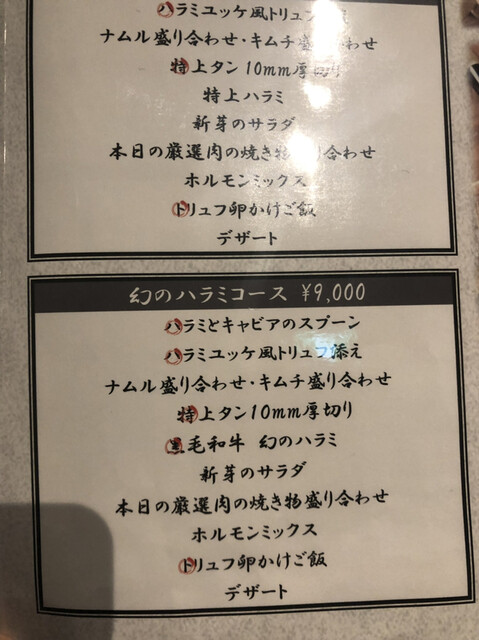 ハラミユッケ風トリュフ添え
ナムル盛り合わせ・キムチ盛り合わせ
特上タン10mm厚切り
特上ハラミ
新芽のサラダ
本日の厳選肉の焼き物盛り合わせ
ホルモンミックス
トリュフ卵かけご飯
デザート
幻のハラミコース ¥9,000
ハラミとキャビアのスプーン
ハラミユッケ風トリュフ添え
ナムル盛り合わせ・キムチ盛り合わせ
特上タン10mm厚切り
黒毛和牛 幻のハラミ
新芽のサラダ
本日の厳選肉の焼き物盛り合わせ
ホルモンミックス
トリュフ卵かけご飯
デザート